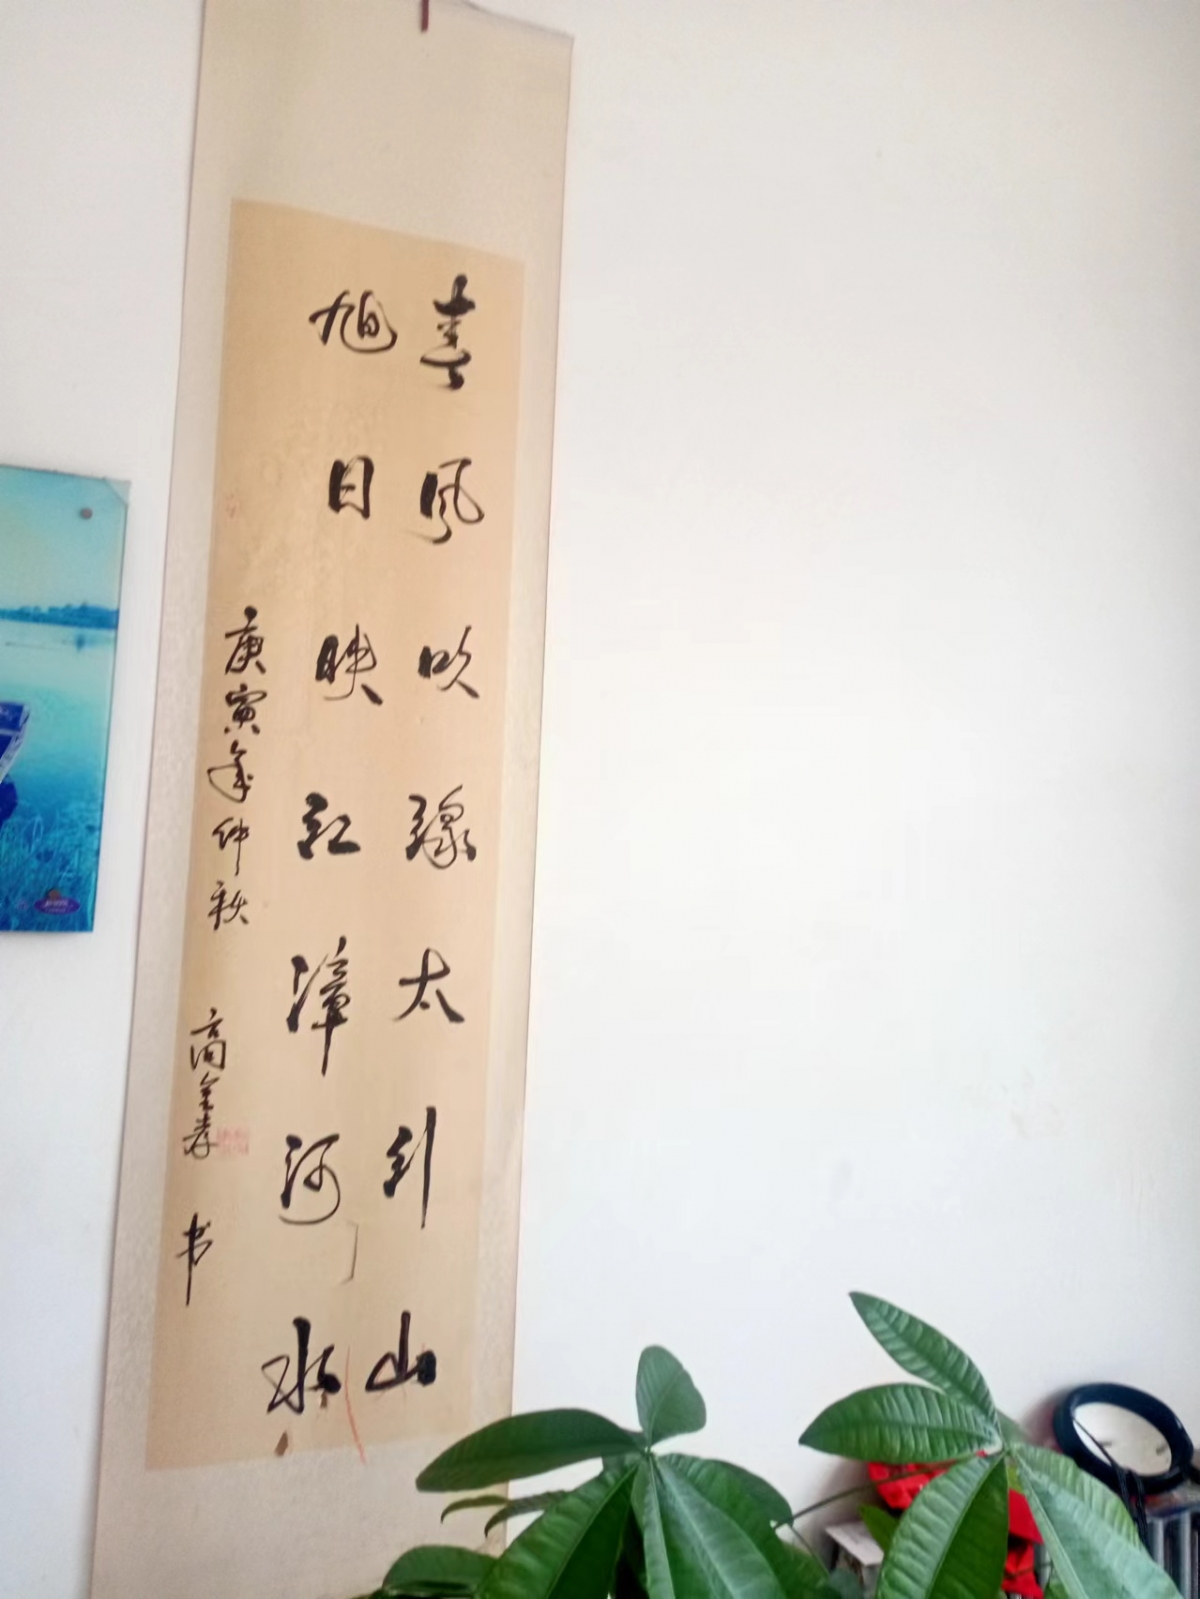 春風吹绿太行山
旭日映红漳河水
庚寅年仲秋
高金 书